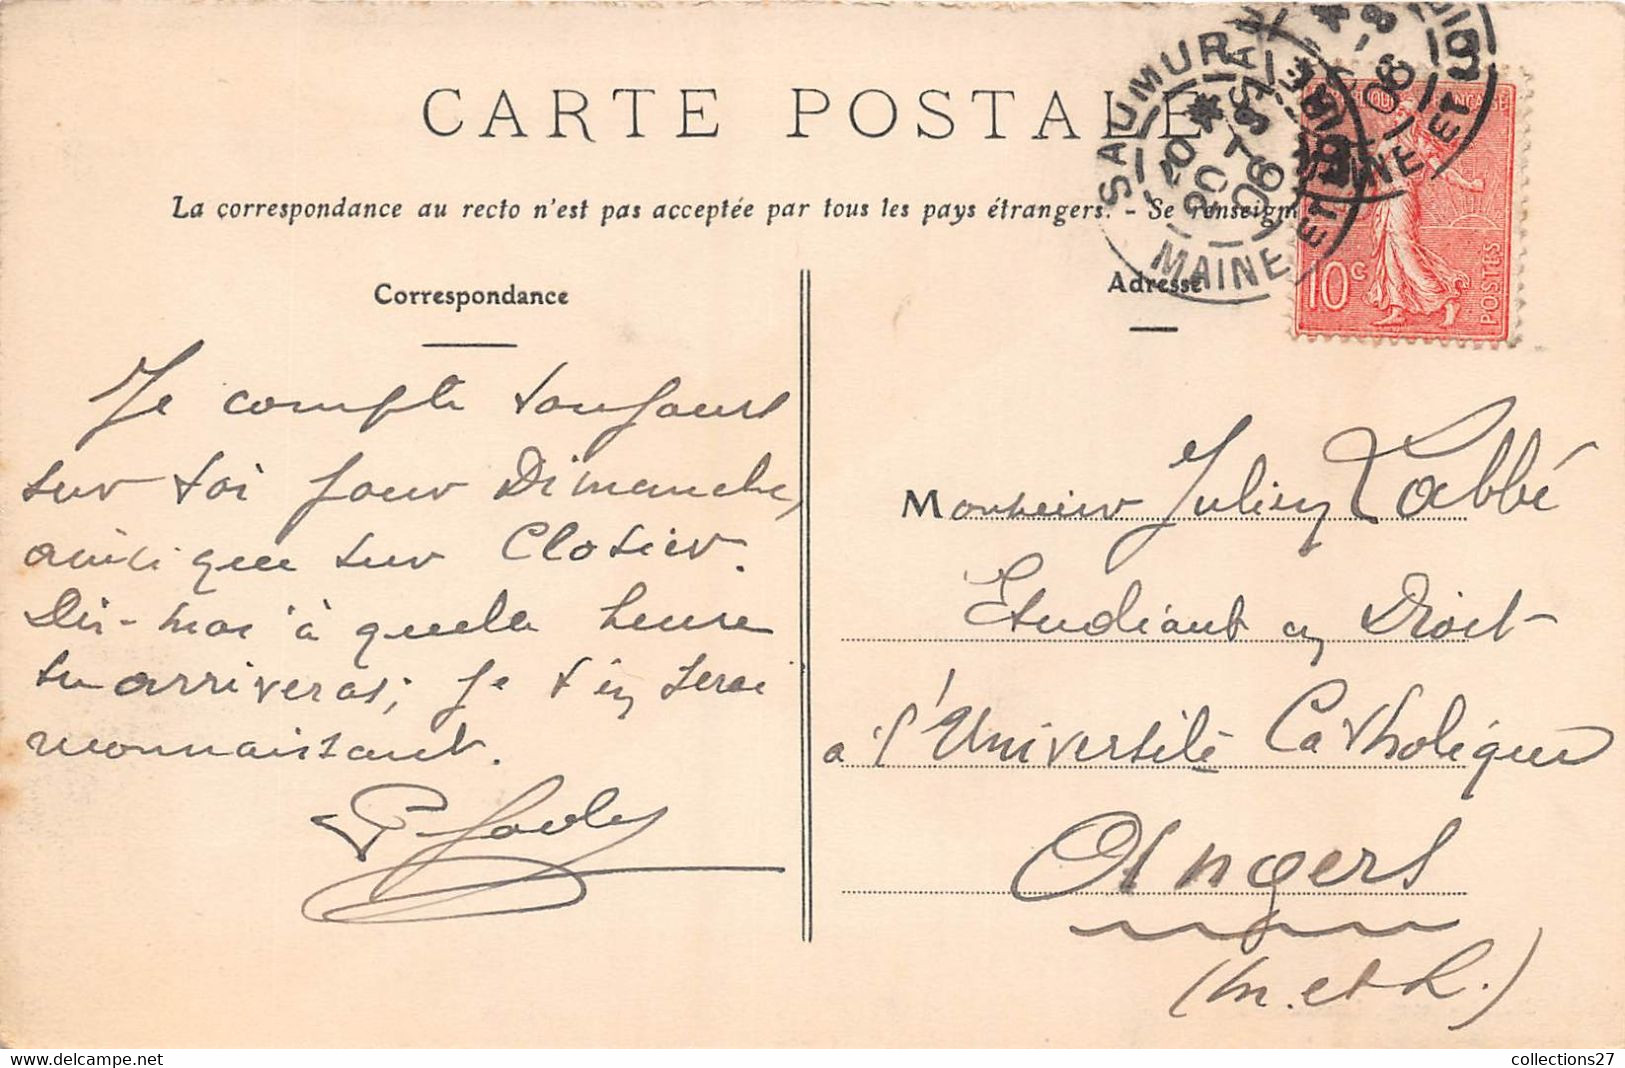 CARTE POSTALE
La correspondance au recto n'est pas acceptée par tous les pays étrangers. - Se renseign
Correspondance
Je compte toujours
sur toi pour Dimanche,
ainsi que sur Closier.
Dis-moi à quelle heure
tu arriveras; je t'en serai
reconnaissant.
Adresse
Monsieur Julien Labbé
Etudiant en Droit
à l'Université Catholique
Angers
(M. et L.)
SAUMUR
MAINE ET
20
06
MAINE ET
06
RÉPUBLIQUE FRANÇAISE
10c
POSTES
collections27